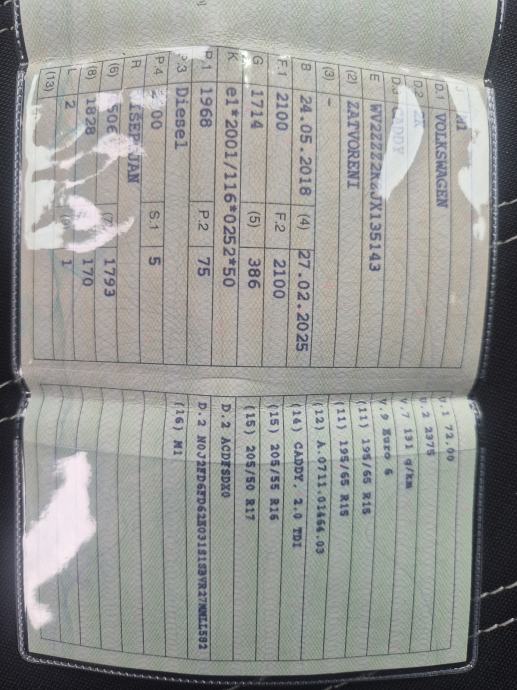 J M1
D.1 VOLKSWAGEN
D.2 2K
D.3 CADDY
E WV2ZZZ2KZJX135143
(2) ZATVORENI
(3) -
B 24.05.2018 (4) 27.02.2025
F.1 2100 F.2 2100
G 1714 (5) 386
K e1*2001/116*0252*50
P.1 1968 P.2 75
P.3 Diesel
P.4 S.1 5
R
(6) (7) 1793
(8) 1828 170
L 2 1
(13)
U.1 72.00
U.2 2375
V.7 131 g/km
V.9 Euro 6
(11) 195/65 R15
(11) 195/65 R15
(12) A.0711.01464.03
(14) CADDY. 2.0 TDI
(15) 205/55 R16
(15) 205/50 R17
D.2 ACDFSDX0
(16) M1